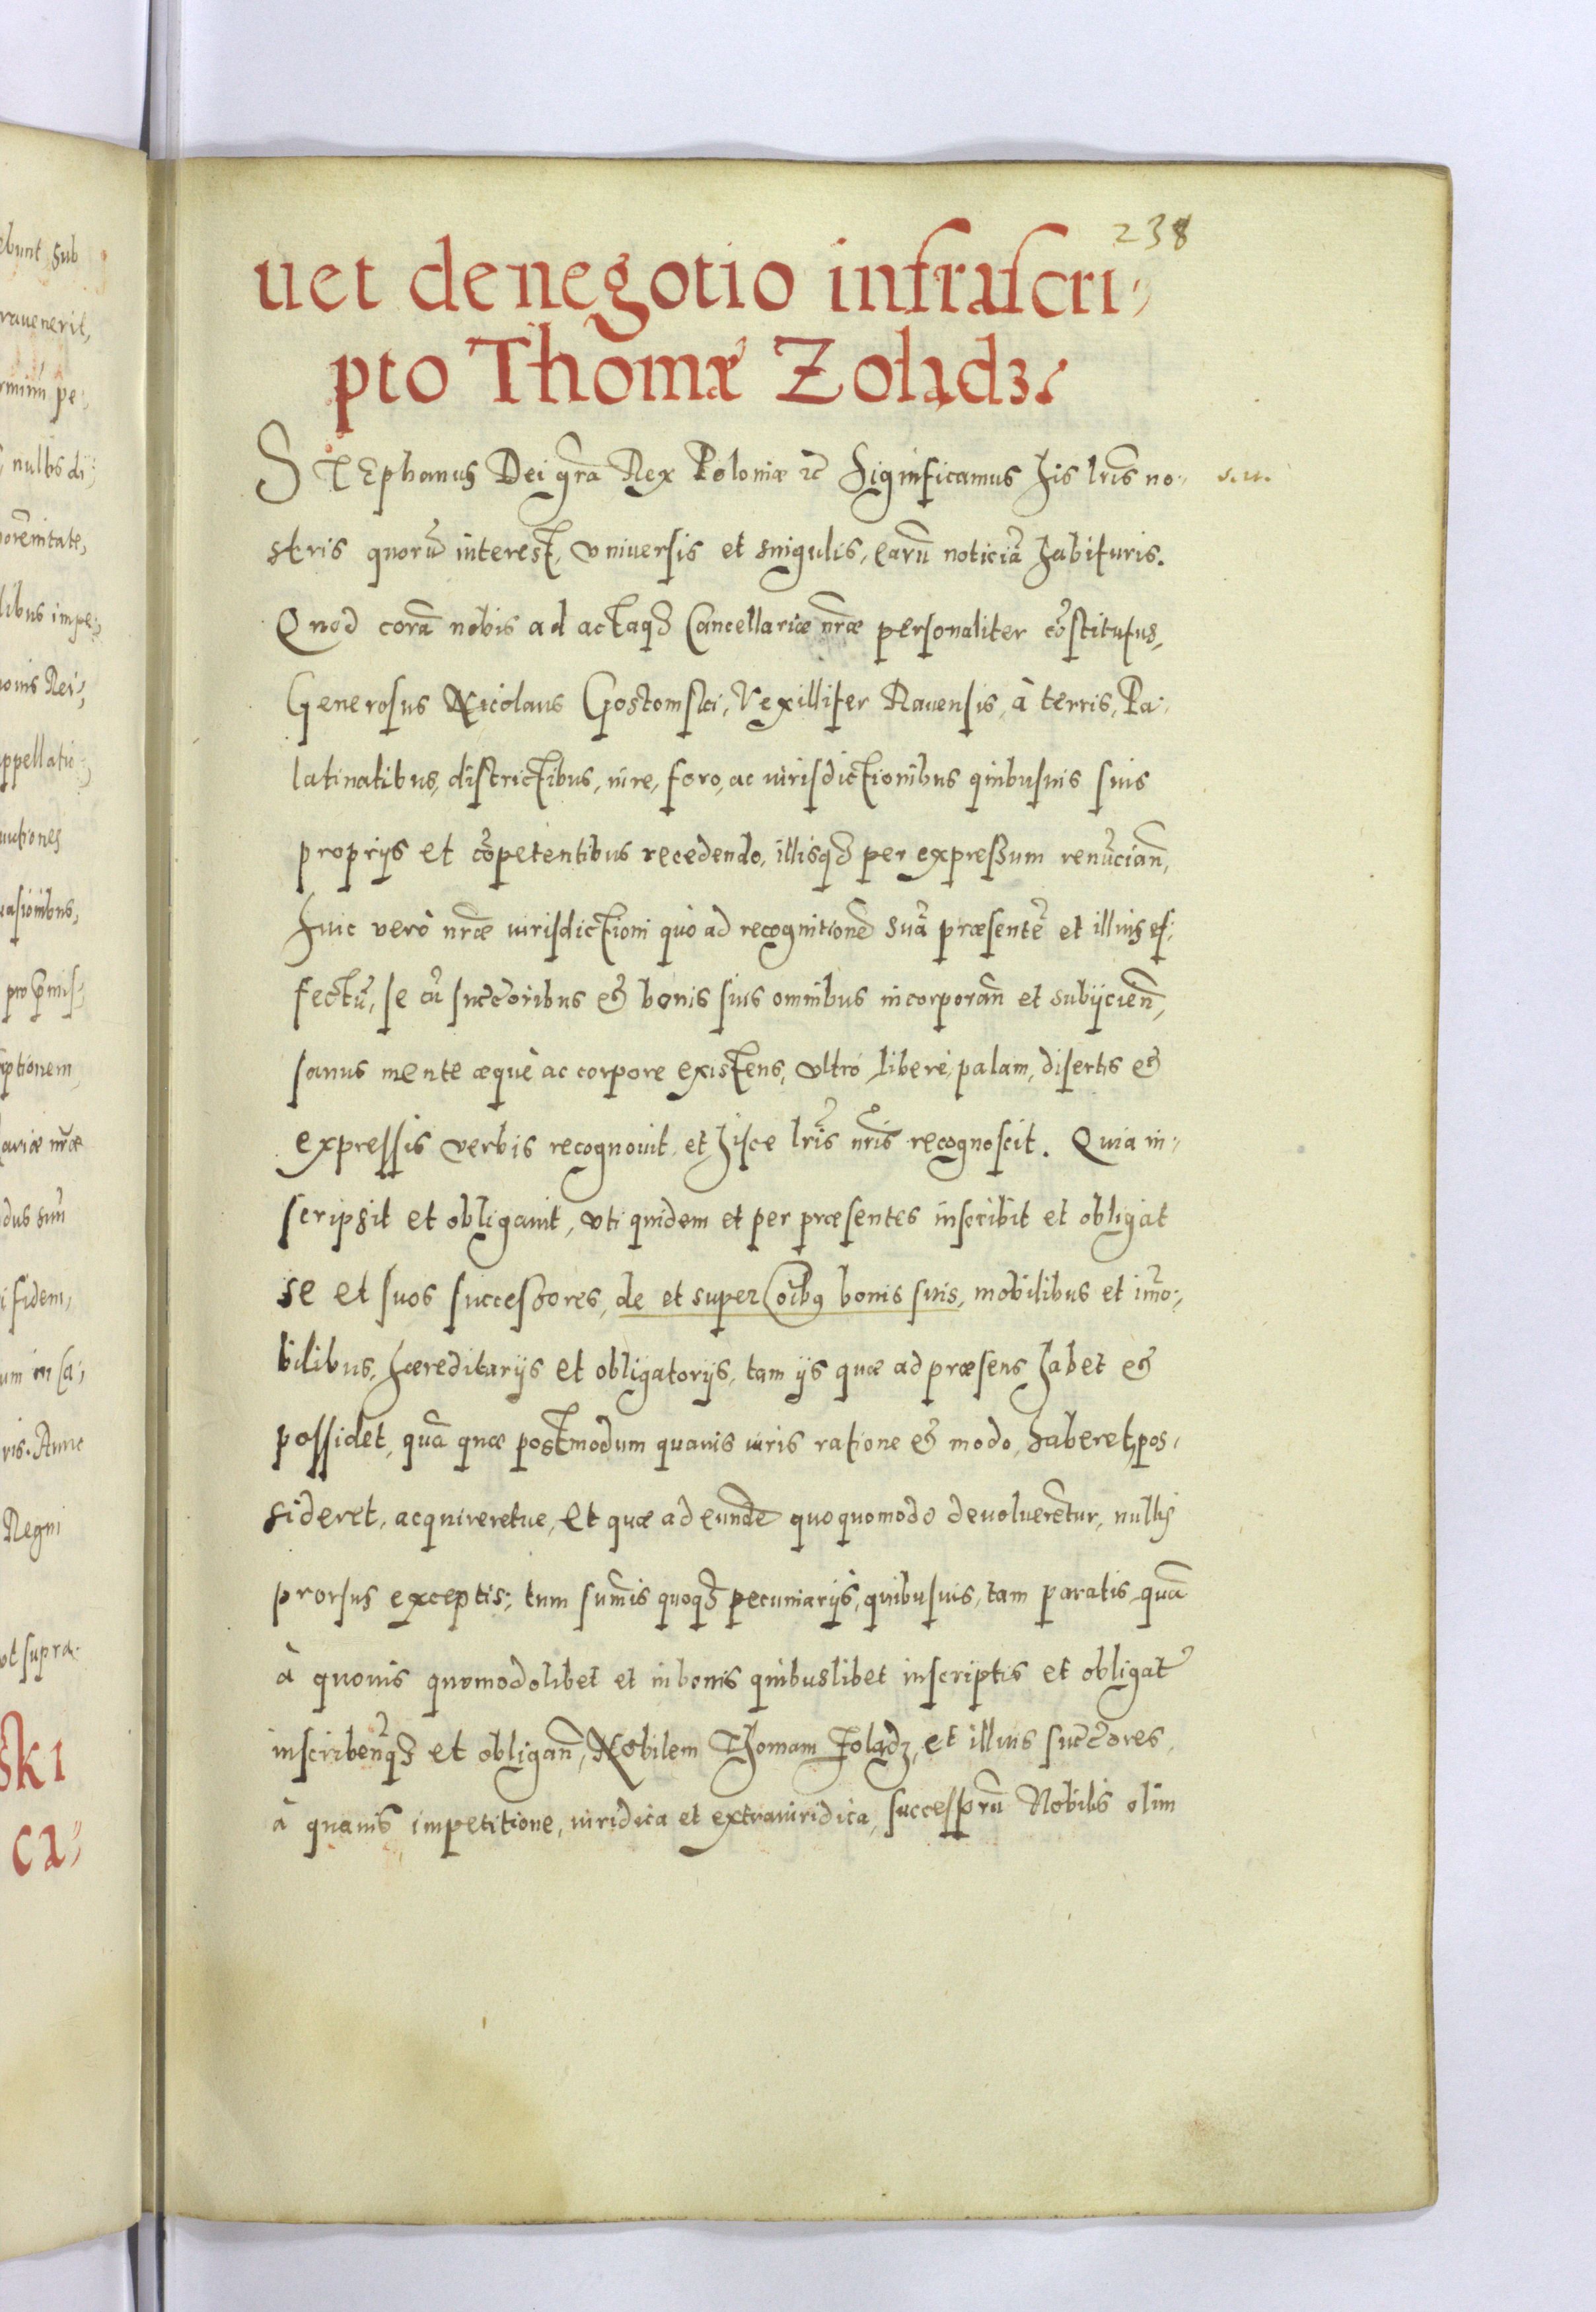 238
uet de negotio infrascri-
pto Thomæ Zolądz.
STEphanus Dei gr̃a Rex Poloniæ etc̃ Significamus his lr̃is no-
s. u.
stris quorũ interest, vniuersis et singulis, earũ noticiã habituris.
Quod corã nobis ad actaq3 Cancellariæ nr̃æ personaliter cõstitutus,
Generosus Nicolaus Gostomski, Vexillifer Rauensis, à terris, Pa-
latinatibus, districtibus, iure, foro, ac iurisdictionibus quibusuis suis
proprijs et cõpetentibus recedendo, illisq3 per expressum renũcian̄,
huic verò nr̃æ iurisdictioni quò ad recognitionẽ suã præsentẽ et illius ef-
fectũ, se cũ succ̃oribus & bonis suis omnibus incorporan̄ et subijcien̄,
sanus mente æquè ac corpore existens, vltrò, liberè, palam, disertis &
expressis verbis recognouit, et hisce lr̃is nr̃is recognoscit. Quia in-
scripsit et obligauit, vti quidem et per præsentes inscribit et obligat
se et suos successores, de et super oĩbus bonis suis, mobilibus et im̃o-
bilibus, hæreditarijs et obligatorijs, tam ijs quæ ad præsens habet &
possidet, quã quæ postmodum quauis iuris ratione & modo, haberet, pos-
sideret, acquireretue, et quæ ad eundẽ quoquomodo deuoluerẽtur, nullis
prorsus exceptis; tum sum̃is quoq3 pecuniarijs, quibusuis, tam paratis quã
à quouis quomodolibet et in bonis quibuslibet inscriptis et obligat̃
inscriben̄q3 et obligan̄, Nobilem Thomam Zolądz, et illius succ̃ores,
à quauis impetitione, iuridica et extraiuridica, successorũ Nobilis olim